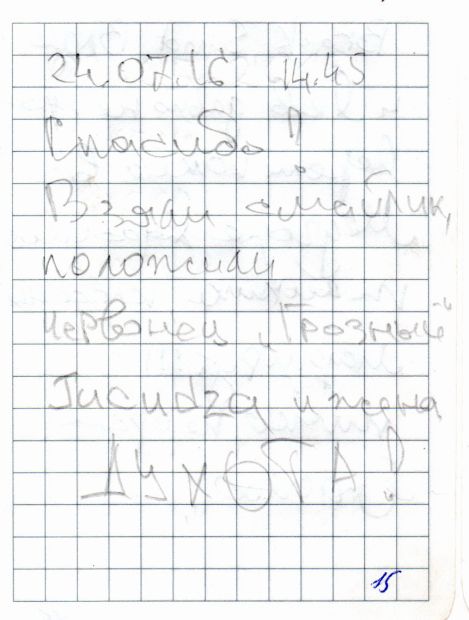 24.07.16 14.45
Спасибо!
Взяли смайлик,
положили
червонец „Грозный“
и жена
ДУХОТА!
15